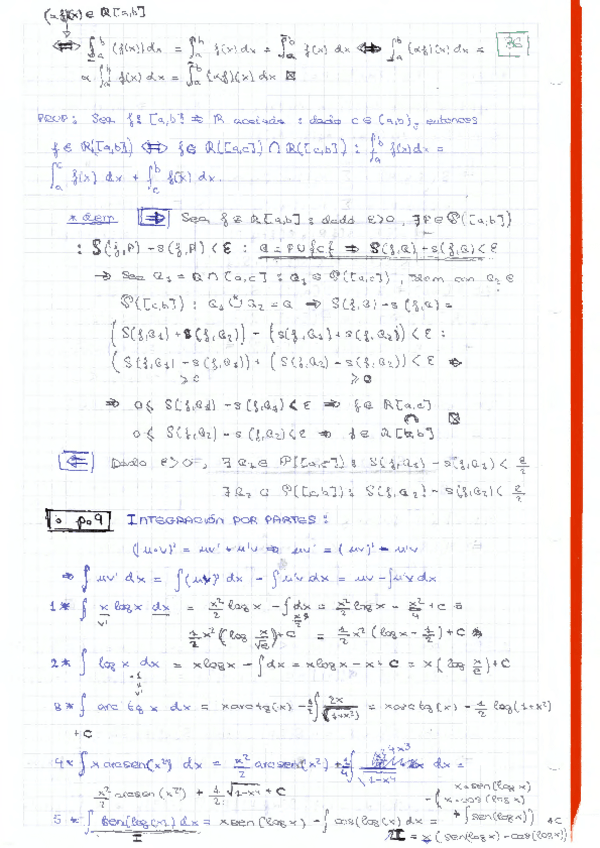 (=f(x) ∈ R[a,b]
⟺ ∫_a^b (f(x)) dx = ∫_a^b f(x) dx = ∫_a^b f(x) dx ⟺ ∫_a^b (αf)(x) dx = 36
α ∫_a^b f(x) dx = ∫_a^b (αf)(x) dx ⊠
PROP: Sea f: [a,b] → R acotada : dado c ∈ (a,b), entonces
f ∈ R([a,b]) ⟺ f ∈ R([a,c]) ∩ R([c,b]) : ∫_a^b f(x) dx =
∫_a^c f(x) dx + ∫_c^b f(x) dx.
* dem ⇒ Sea f ∈ R[a,b] : dado ε>0, ∃ P ∈ P([a,b])
: S(f,P) - s(f,P) < ε : Q = P ∪ {c} ⇒ S(f,Q) - s(f,Q) < ε
→ Sea Q1 = Q ∩ [a,c] : Q1 ∈ P([a,c]), Q2 ∈
P([c,b]) : Q1 ∪ Q2 = Q ⇒ S(f,Q) - s(f,Q) =
(S(f,Q1) + S(f,Q2)) - (s(f,Q1) + s(f,Q2)) < ε :
(S(f,Q1) - s(f,Q1)) + (S(f,Q2) - s(f,Q2)) < ε ⇒
≥ 0 ≥ 0
⇒ 0 ≤ S(f,Q1) - s(f,Q1) < ε ⇒ f ∈ R[a,c]
∩ ⊠
0 ≤ S(f,Q2) - s(f,Q2) < ε ⇒ f ∈ R[c,b]
⇐ Dado ε>0, ∃ Q1 ∈ P([a,c]) : S(f,Q1) - s(f,Q1) < ε/2
∃ Q2 ∈ P([c,b]) : S(f,Q2) - s(f,Q2) < ε/2
INTEGRACIÓN POR PARTES:
(u·v)' = uv' + u'v ⇒ uv' = (uv)' - u'v
⇒ ∫ uv' dx = ∫ (uv)' dx - ∫ u'v dx = uv - ∫ u'v dx
1* ∫ x log x dx = x²/2 log x - ∫ x/2 dx = x²/2 log x - x²/4 + c =
v' 1/2 x² (log x/√e) + c = 1/2 x² (log x - 1/2) + c
2* ∫ log x dx = x log x - ∫ dx = x log x - x + c = x (log x/e) + c
·1
v'
3* ∫ arc tg x dx = x arctg(x) - 1/2 ∫ 2x/(1+x²) = x arctg(x) - 1/2 log(1+x²)
+ c
4* ∫ x arcsen(x²) dx = x²/2 arcsen(x²) + 1/4 ∫ 4x³/√1-x⁴ dx =
x²/2 arcsen(x²) + 1/2 √1-x⁴ + c
x·sen(log x)
- { x·cos(log x)
5* ∫ sen(log(x)) dx = x sen(log x) - ∫ cos(log(x)) dx = + ∫ sen(log x) + c
I 2I = x (sen(log x) - cos(log x))